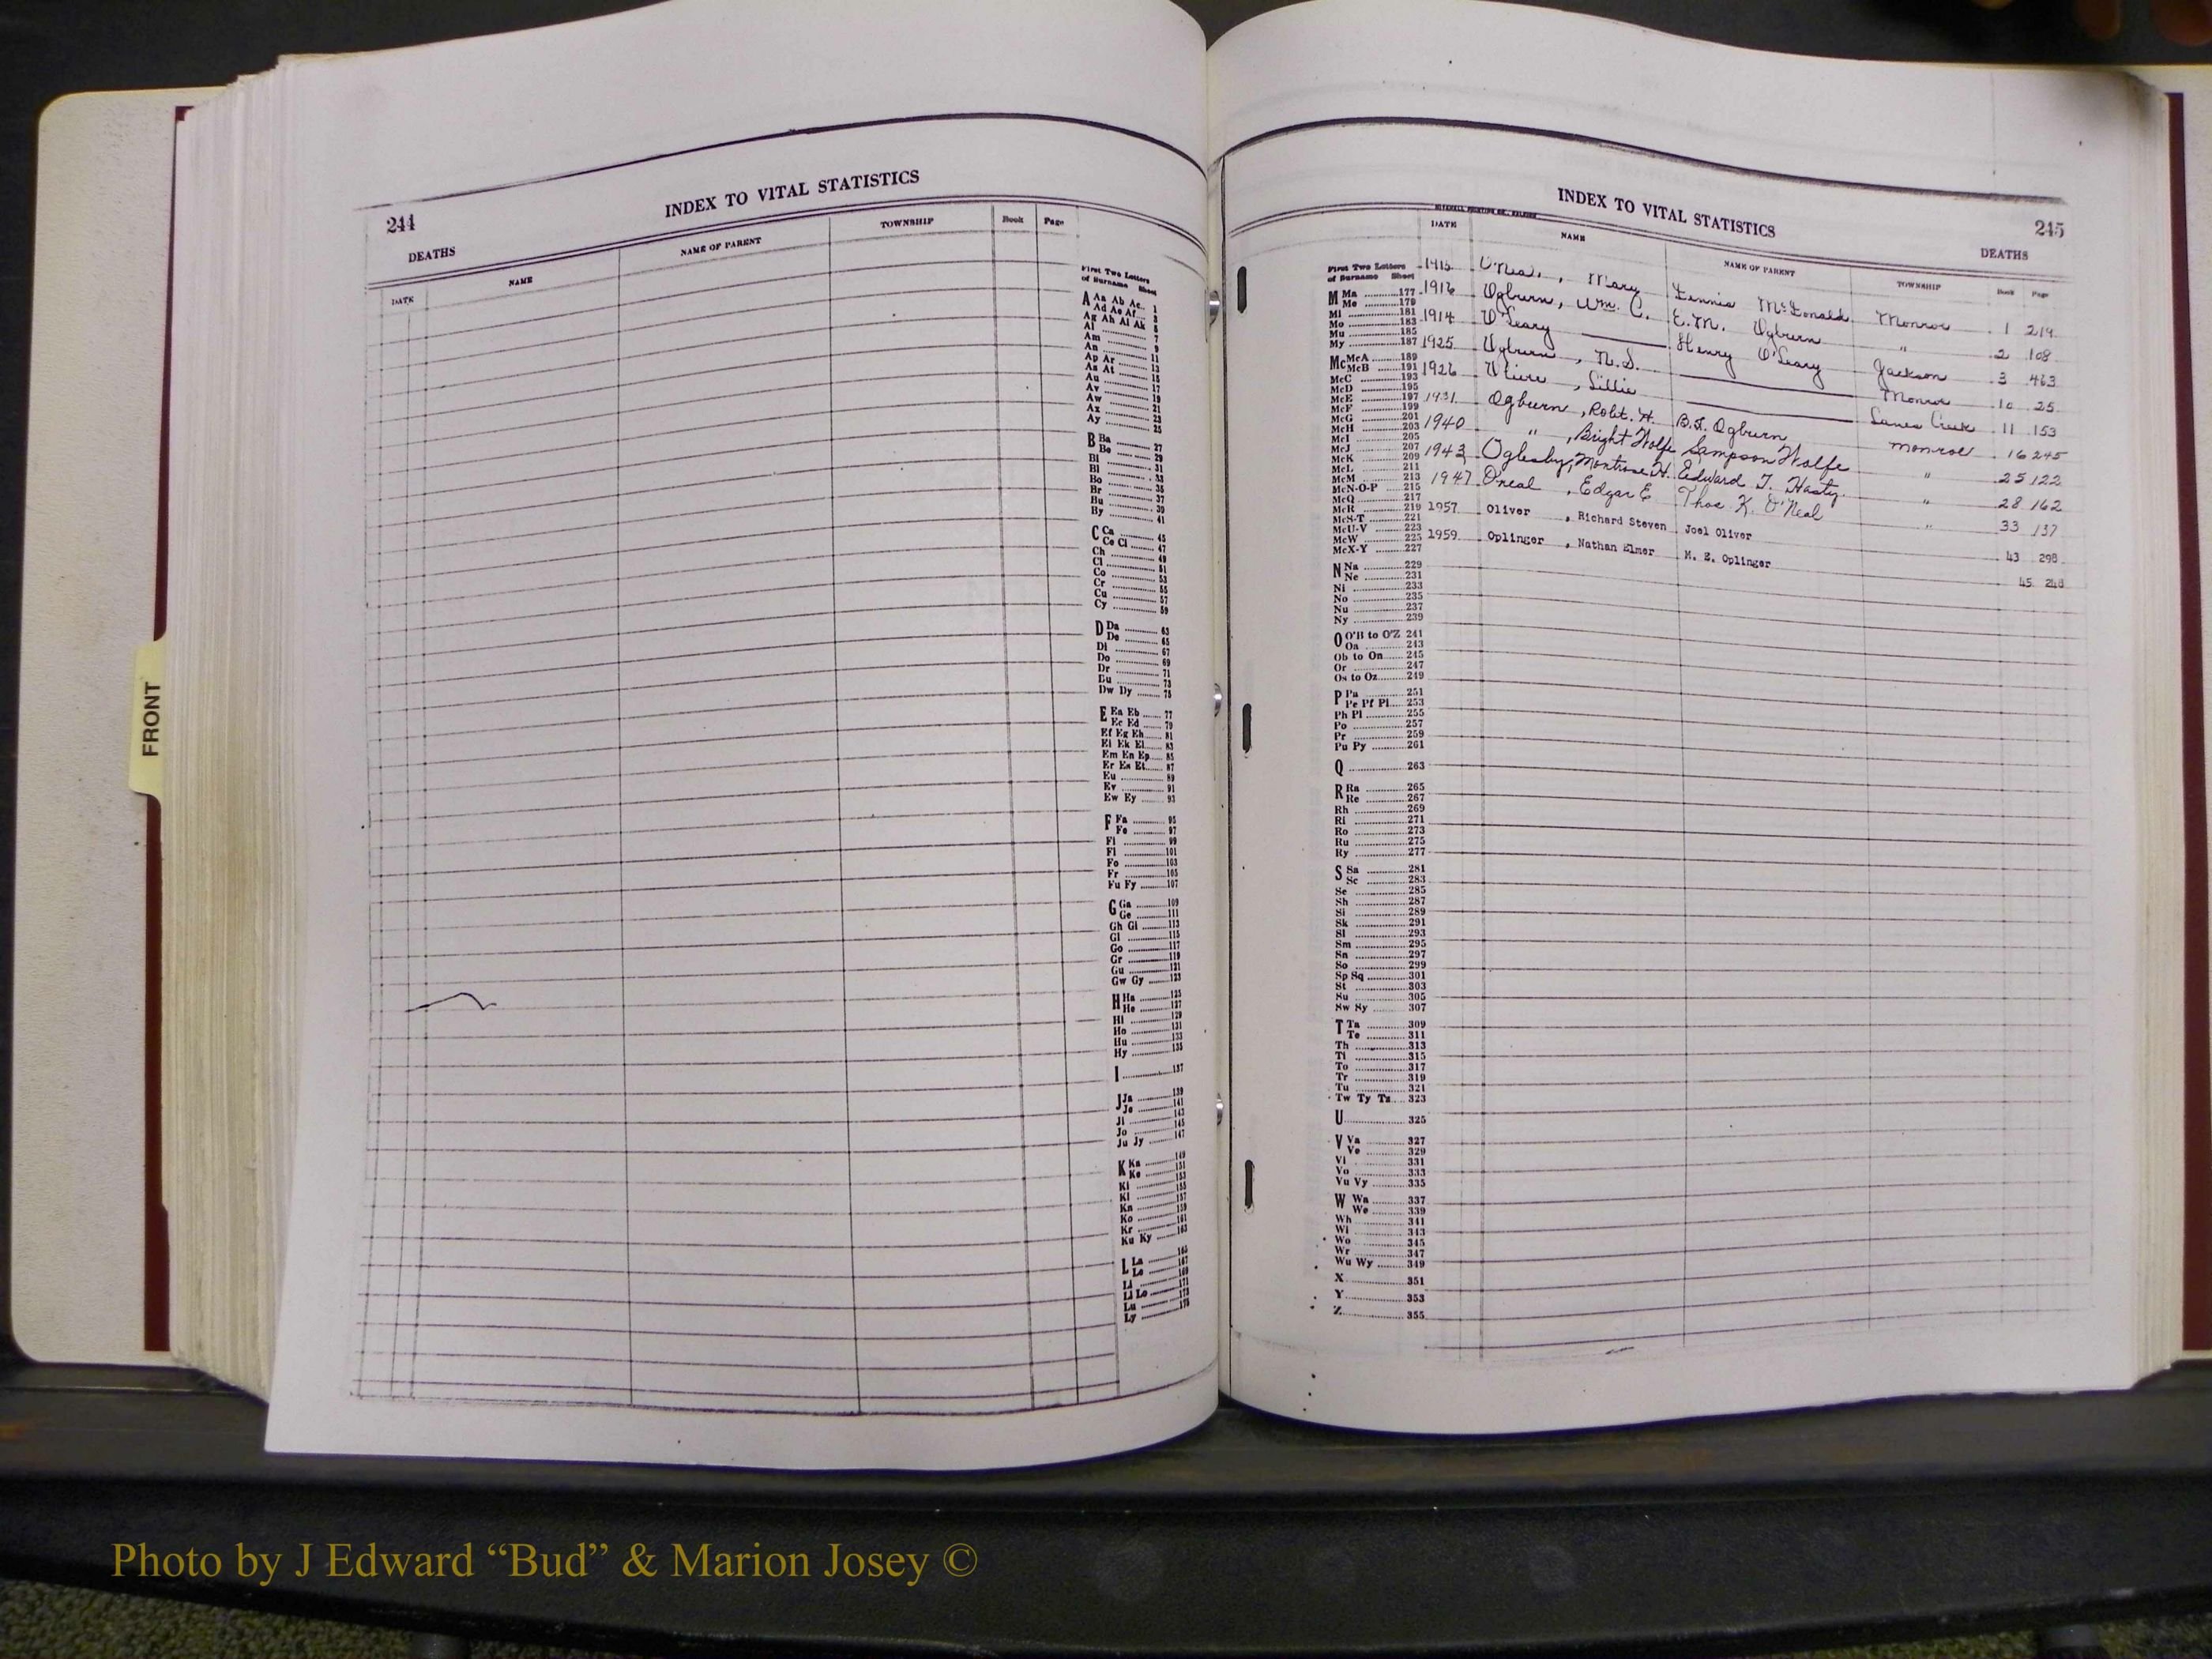 FRONT
244
INDEX TO VITAL STATISTICS
DEATHS
DATE NAME NAME OF PARENT TOWNSHIP Book Page
First Two Letters
of Surname Sheet
A Aa Ab Ac 1
Ad Ae Af 3
Ag Ah Ai Ak 5
Al 7
Am 9
An
Ap Ar 11
As At 13
Au 15
Av 17
Aw 21
Ax 23
Ay 25
B Ba 27
Be 29
Bi 31
Bl 33
Bo 35
Br 37
Bu 39
By 41
C Ca 45
Ce Ci 47
Ch 49
Cl 51
Co 53
Cr 55
Cu 57
Cy 59
D Da 63
De 65
Di 67
Do 69
Dr 71
Du 73
Dw Dy 75
E Ea Eb 77
Ec Ed 79
Ef Eg Eh 81
Ei Ek El 83
Em En Ep 85
Er Es Et 87
Eu 89
Ev 91
Ew Ey 93
F Fa 95
Fe 97
Fi 99
Fl 101
Fo 103
Fr 105
Fu Fy 107
G Ga 109
Ge 111
Gh Gi 113
Gl 115
Go 117
Gr 119
Gu 121
Gw Gy 123
H Ha 125
He 127
Hi 129
Ho 131
Hu 133
Hy 135
I 137
J Ja 139
Je 141
Ji 143
Jo 145
Ju Jy 147
K Ka 149
Ke 151
Ki 153
Kl 155
Kn 157
Ko 161
Kr 163
Ku Ky
L La 165
Le 167
Li 169
Ll Lo 171
Lu 173
Ly 175
INDEX TO VITAL STATISTICS
245
DEATHS
DATE NAME NAME OF PARENT TOWNSHIP Book Page
1915 O'Neal, Mary McDonald Monroe 1 219
1916 Ogburn, Wm. C. E. M. Ogburn " 2 108
1914 O'Leary Henry O'Leary Jackson 3 463
1925 Ogburn, N. S. Monroe 10 25
1926 Olive, Lillie Lanes Creek 11 153
1931 Ogburn, Robt. H. B. F. Ogburn Monroe 16 245
1940 ", Bright Wolfe Sampson Wolfe " 25 122
1943 Oglesby, Montrose H. Edward T. Hasty " 28 162
1947 O'neal, Edgar E Thos K. O'Neal " 33 137
1957 Oliver, Richard Steven Joel Oliver 43 298
1959 Oplinger, Nathan Elmer M. E. Oplinger 45 248
First Two Letters
of Surname Sheet
M Ma 177
Me 179
Mi 181
Mo 183
Mu 185
My 187
Mc McA 189
McB 191
McC 193
McD 195
McE 197
McF 199
McG 201
McH 203
McI 205
McJ 207
McK 209
McL 211
McM 213
McN-O-P 215
McQ 217
McR 219
McS-T 221
McU-V 223
McW 225
McX-Y 227
N Na 229
Ne 231
Ni 233
No 235
Nu 237
Ny 239
O O'B to O'Z 241
Oa 243
Ob to On 245
Or 247
Os to Oz 249
P Pa 251
Pe Pf Pi 253
Ph Pl 255
Po 257
Pr 259
Pu Py 261
Q 263
R Ra 265
Re 267
Rh 269
Ri 271
Ro 273
Ru 275
Ry 277
S Sa 281
Sc 283
Se 285
Sh 287
Si 289
Sk 291
Sl 293
Sm 295
Sn 297
So 299
Sp Sq 301
St 303
Su 305
Sw Sy 307
T Ta 309
Te 311
Th 313
Ti 315
To 317
Tr 319
Tu 321
Tw Ty Tz 323
U 325
V Va 327
Ve 329
Vi 331
Vo 333
Vu Vy 335
W Wa 337
We 339
Wh 341
Wi 343
Wo 345
Wr 347
Wu Wy 349
X 351
Y 353
Z 355
Photo by J Edward “Bud” & Marion Josey ©